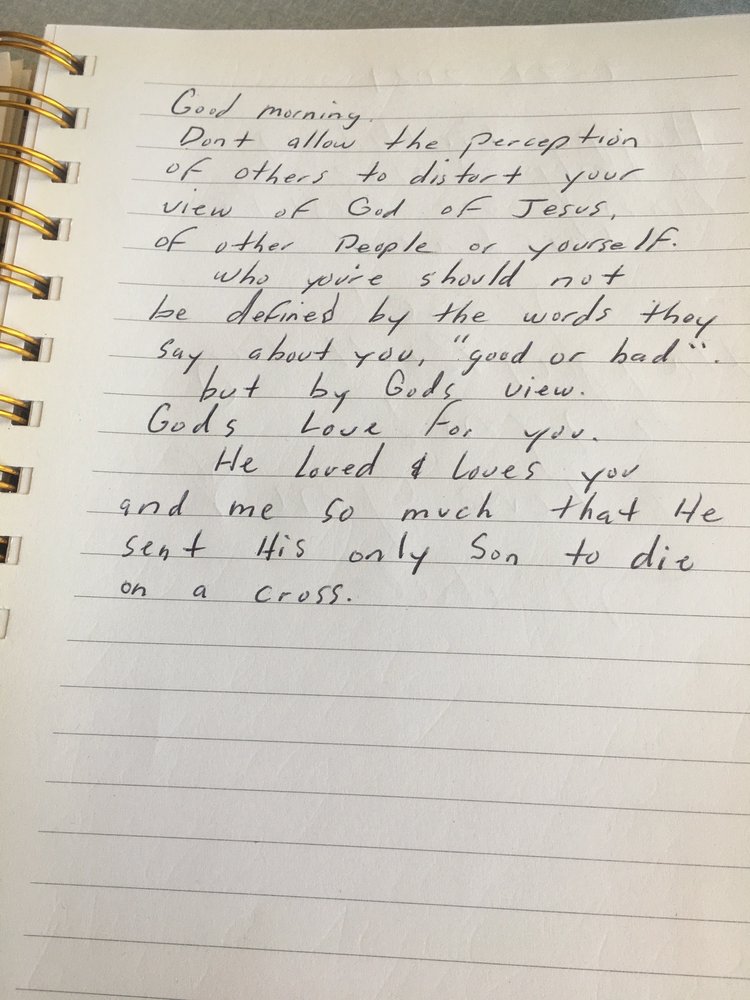 Good morning.
Dont allow the perception
of others to distort your
view of God of Jesus,
of other People or yourself.
who you're should not
be defined by the words they
say about you, "good or bad".
but by Gods view.
Gods Love for you.
He Loved & Loves you
and me so much that He
sent His only Son to die
on a cross.